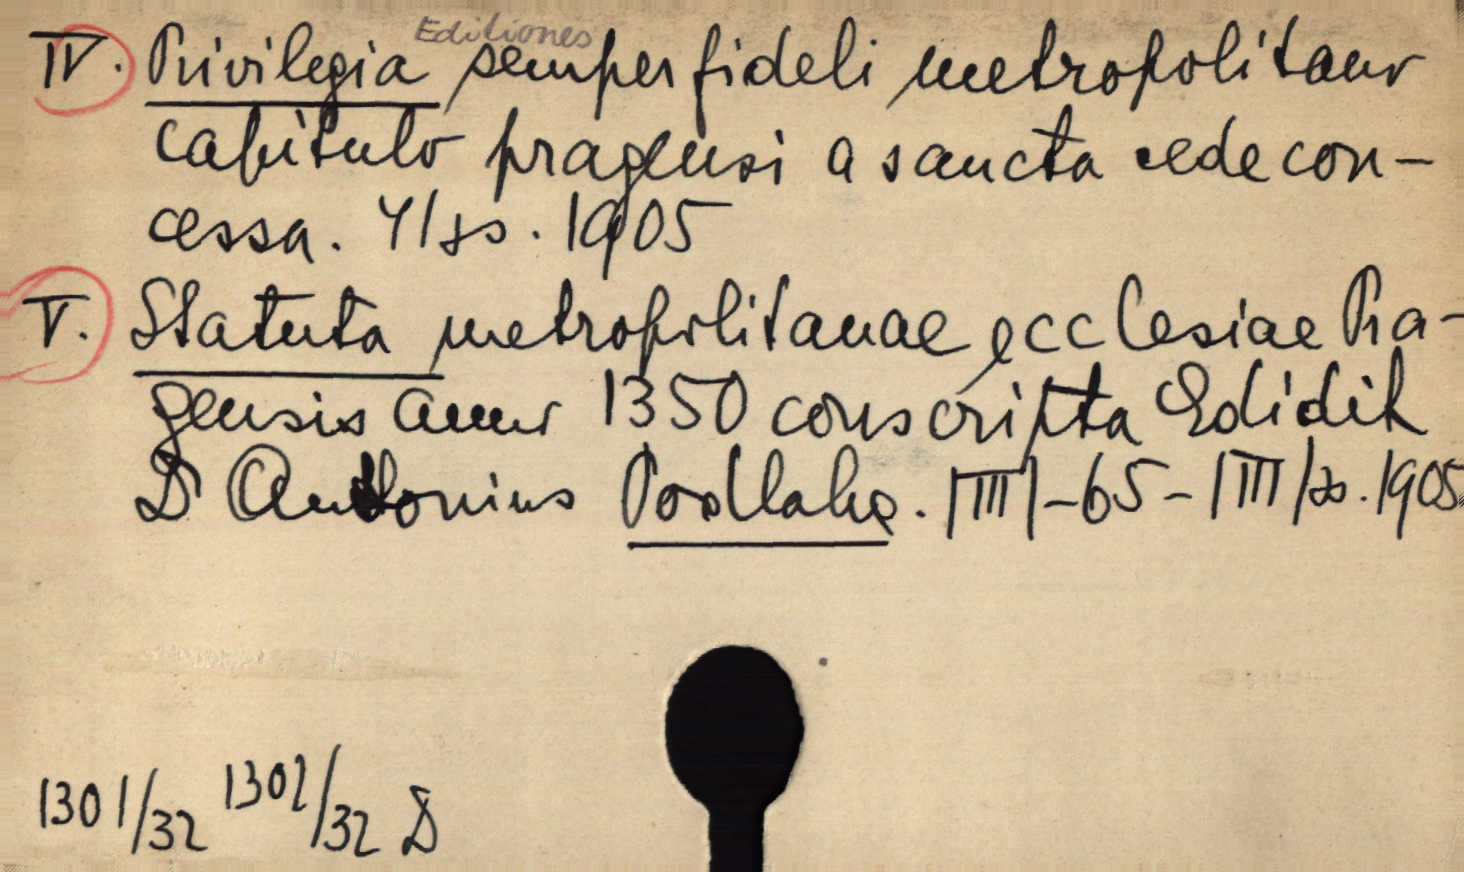 Editiones
IV. Privilegia semper fideli metropolitano
capitulo pragensi a sancta sede con-
cessa. 41 ss. 1905
V. Statuta metropolitanae ecclesiae Pra-
gensis anno 1350 conscripta Edidit
Dr Antonius Podlaha. |III|-65-|III| ss. 1905
1301/32 1302/32 D